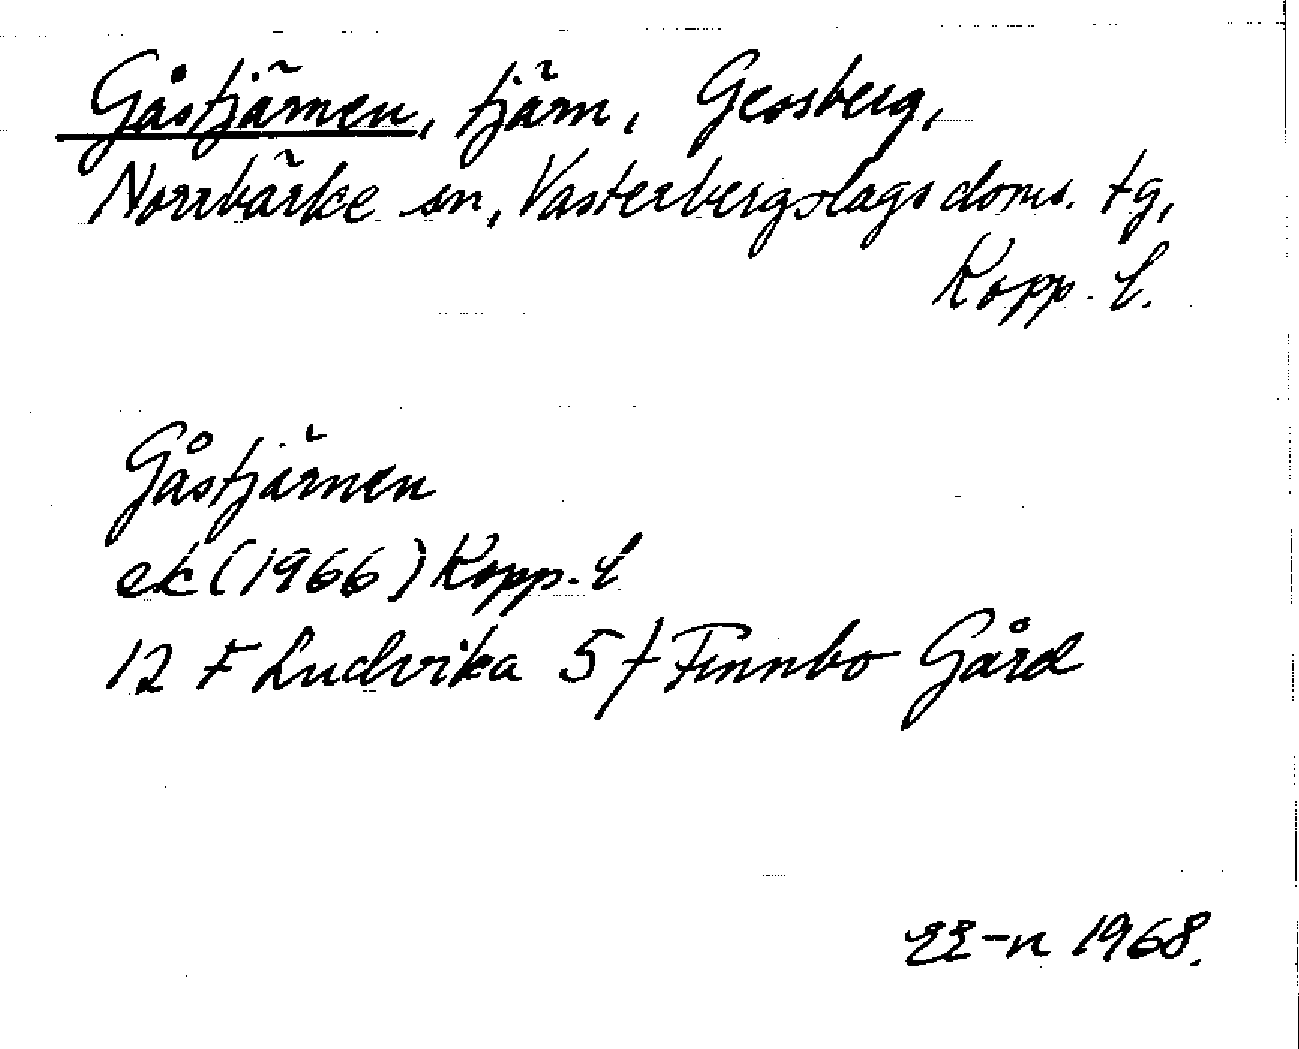 Gåstjärnen, tjärn, Gessberg,
Norrbärke sn, Västerbergslags doms. tg,
Kopp. l.
Gåstjärnen
ek (1966) Kopp. l
12 F Ludvika 5 f Finnbo Gård
1968.